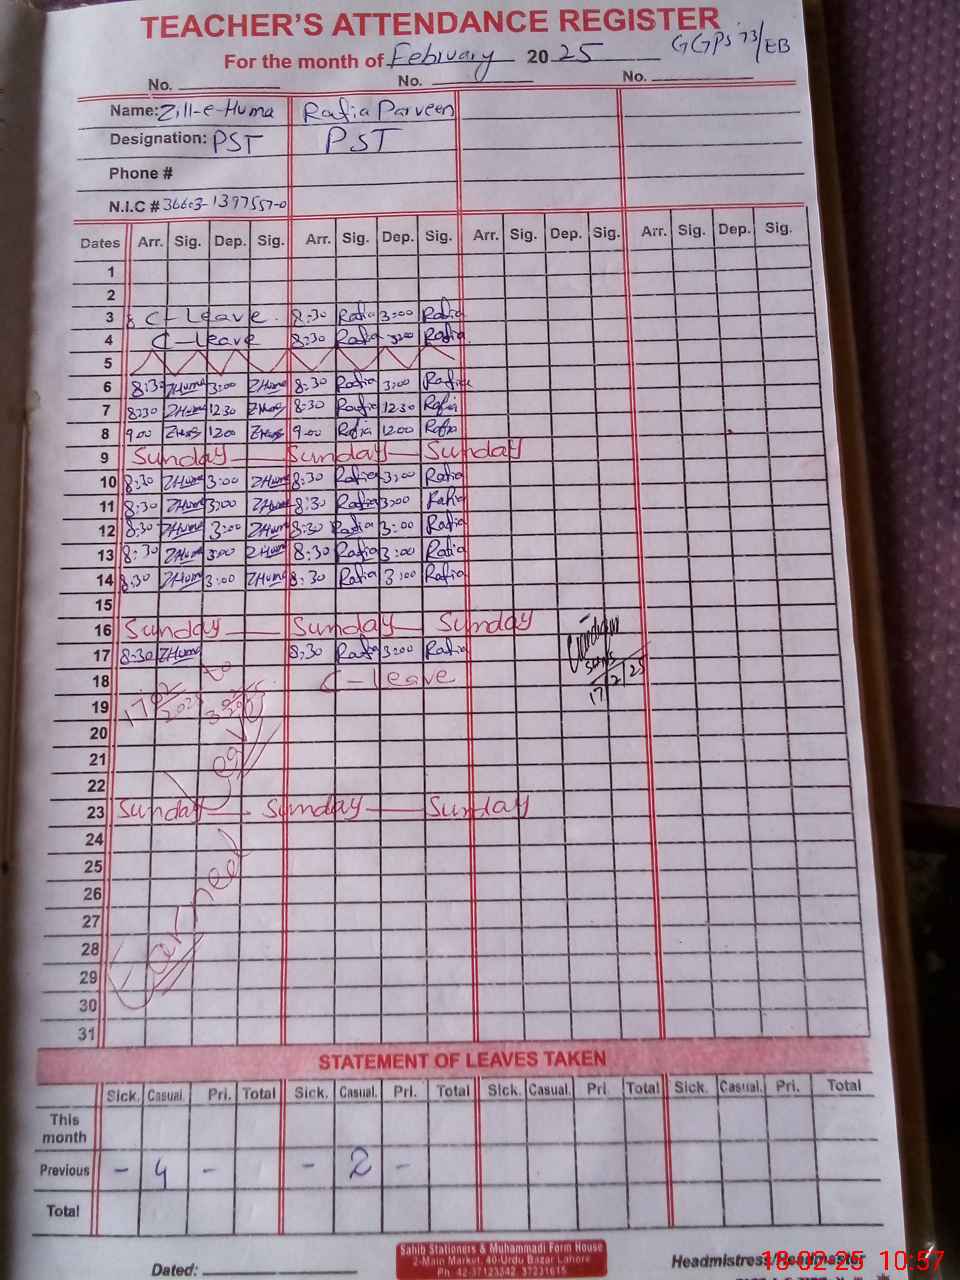 TEACHER'S ATTENDANCE REGISTER
For the month of February 2025 GGPS 73/EB
No. No. No.
Name: Zill-e-Huma Rafia Parveen
Designation: PST PST
Phone #
N.I.C # 36603-1397557-0
Dates Arr. Sig. Dep. Sig. Arr. Sig. Dep. Sig. Arr. Sig. Dep. Sig. Arr. Sig. Dep. Sig.
1
2
3 C-leave 8:30 Rafia 3:00 Rafia
4 C-leave 8:30 Rafia 3:00 Rafia
5
6 8:30 ZHuma 3:00 ZHuma 8:30 Rafia 3:00 Rafia
7 8:30 ZHuma 12:30 ZHuma 8:30 Rafia 12:30 Rafia
8 9:00 ZHuma 12:00 ZHuma 9:00 Rafia 12:00 Rafia
9 Sunday Sunday Sunday
10 8:30 ZHuma 3:00 ZHuma 8:30 Rafia 3:00 Rafia
11 8:30 ZHuma 3:00 ZHuma 8:30 Rafia 3:00 Rafia
12 8:30 ZHuma 3:00 ZHuma 8:30 Rafia 3:00 Rafia
13 8:30 ZHuma 3:00 ZHuma 8:30 Rafia 3:00 Rafia
14 8:30 ZHuma 3:00 ZHuma 8:30 Rafia 3:00 Rafia
15
16 Sunday Sunday Sunday
17 8:30 ZHuma 8:30 Rafia 3:00 Rafia
18 C-leave 17/2/25
19
20
21
22
23 Sunday Sunday Sunday
24
25
26
27
28
29
30
31
Earned Leave
STATEMENT OF LEAVES TAKEN
Sick. Casual. Pri. Total Sick. Casual. Pri. Total Sick. Casual. Pri. Total Sick. Casual. Pri. Total
This month
Previous - 4 - - 2 -
Total
Sahib Stationers & Muhammadi Form House
2-Main Market, 40-Urdu Bazar Lahore
Ph: 42-37123342, 37231615
Dated: Headmistress/Headmaster
18-02-25 10:57